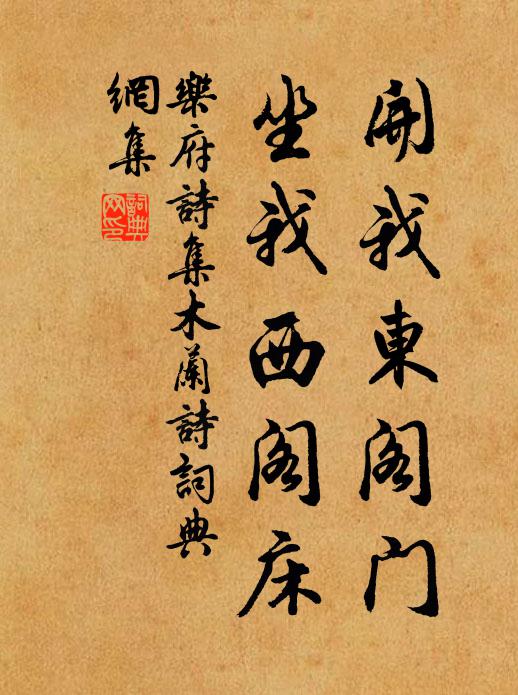 開我東阁门
坐我西阁床
樂府詩集木蘭詩詞典
網集
詞典
网印